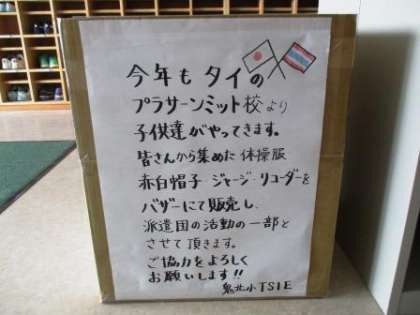 今年も タイの
プラサーンミット校より
子供達がやってきます。
皆さんから集めた 体操服
赤白帽子 ジャージ・リコーダーを
バザーにて販売し
派遣国の活動の一部と
させて頂きます。
ご協力をよろしく
お願いします!!
鬼北小TSIE